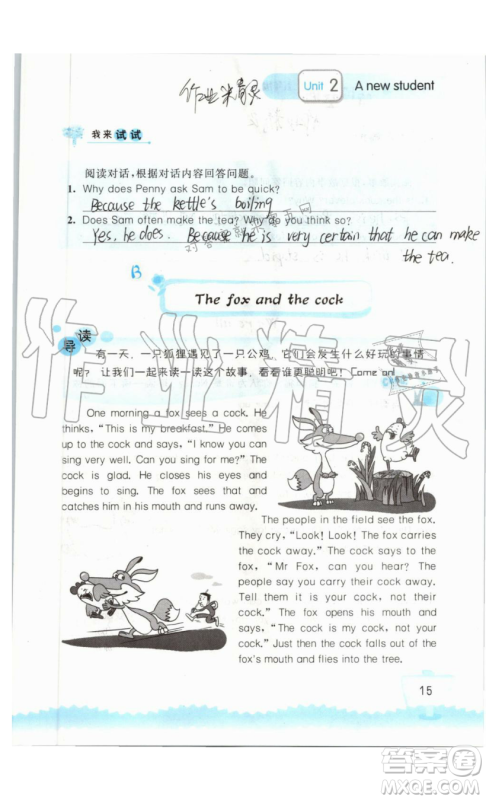 作业精灵
Unit 2 A new student
我来试试
阅读对话，根据对话内容回答问题。
1. Why does Penny ask Sam to be quick?
Because the kettle's boiling
2. Does Sam often make the tea? Why do you think so?
Yes, he does. Because he is very certain that he can make
the tea.
B
The fox and the cock
导读
有一天，一只狐狸遇见了一只公鸡，它们会发生什么好玩的事情
呢？让我们一起来读一读这个故事，看看谁更聪明吧！Come on!
One morning a fox sees a cock. He
thinks, "This is my breakfast." He comes
up to the cock and says, "I know you can
sing very well. Can you sing for me?" The
cock is glad. He closes his eyes and
begins to sing. The fox sees that and
catches him in his mouth and runs away.
The people in the field see the fox.
They cry, "Look! Look! The fox carries
the cock away." The cock says to the
fox, "Mr Fox, can you hear? The
people say you carry their cock away.
Tell them it is yours, not their
cock." The fox opens his mouth and
says, "The cock is my cock, not your
cock." Just then the cock falls out of the
fox's mouth and flies into the tree.
15
作业精灵
答案圈
MXQE.COM